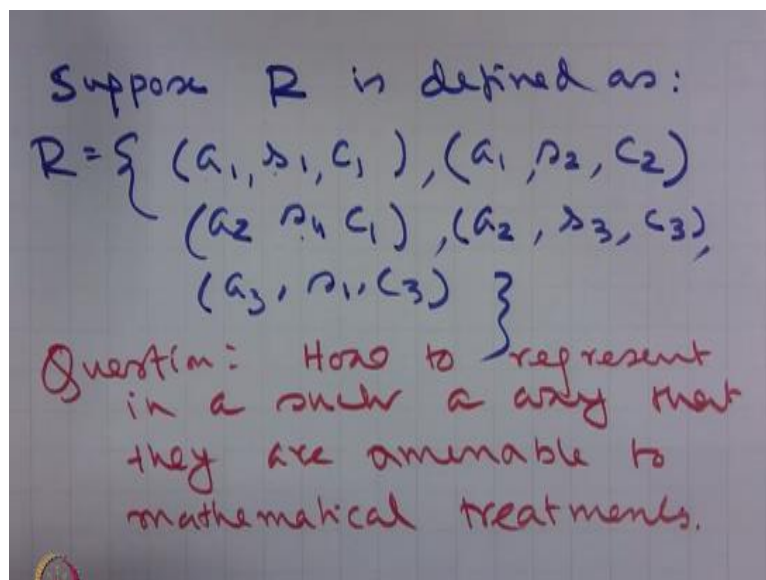 Suppose R is defined as:
R = { (a₁, s₁, c₁), (a₁, s₂, c₂)
(a₂ s₄ c₁), (a₂, s₃, c₃),
(a₃, s₁, c₃) }
Question: How to represent
in a such a way that
they are amenable to
mathematical treatments.